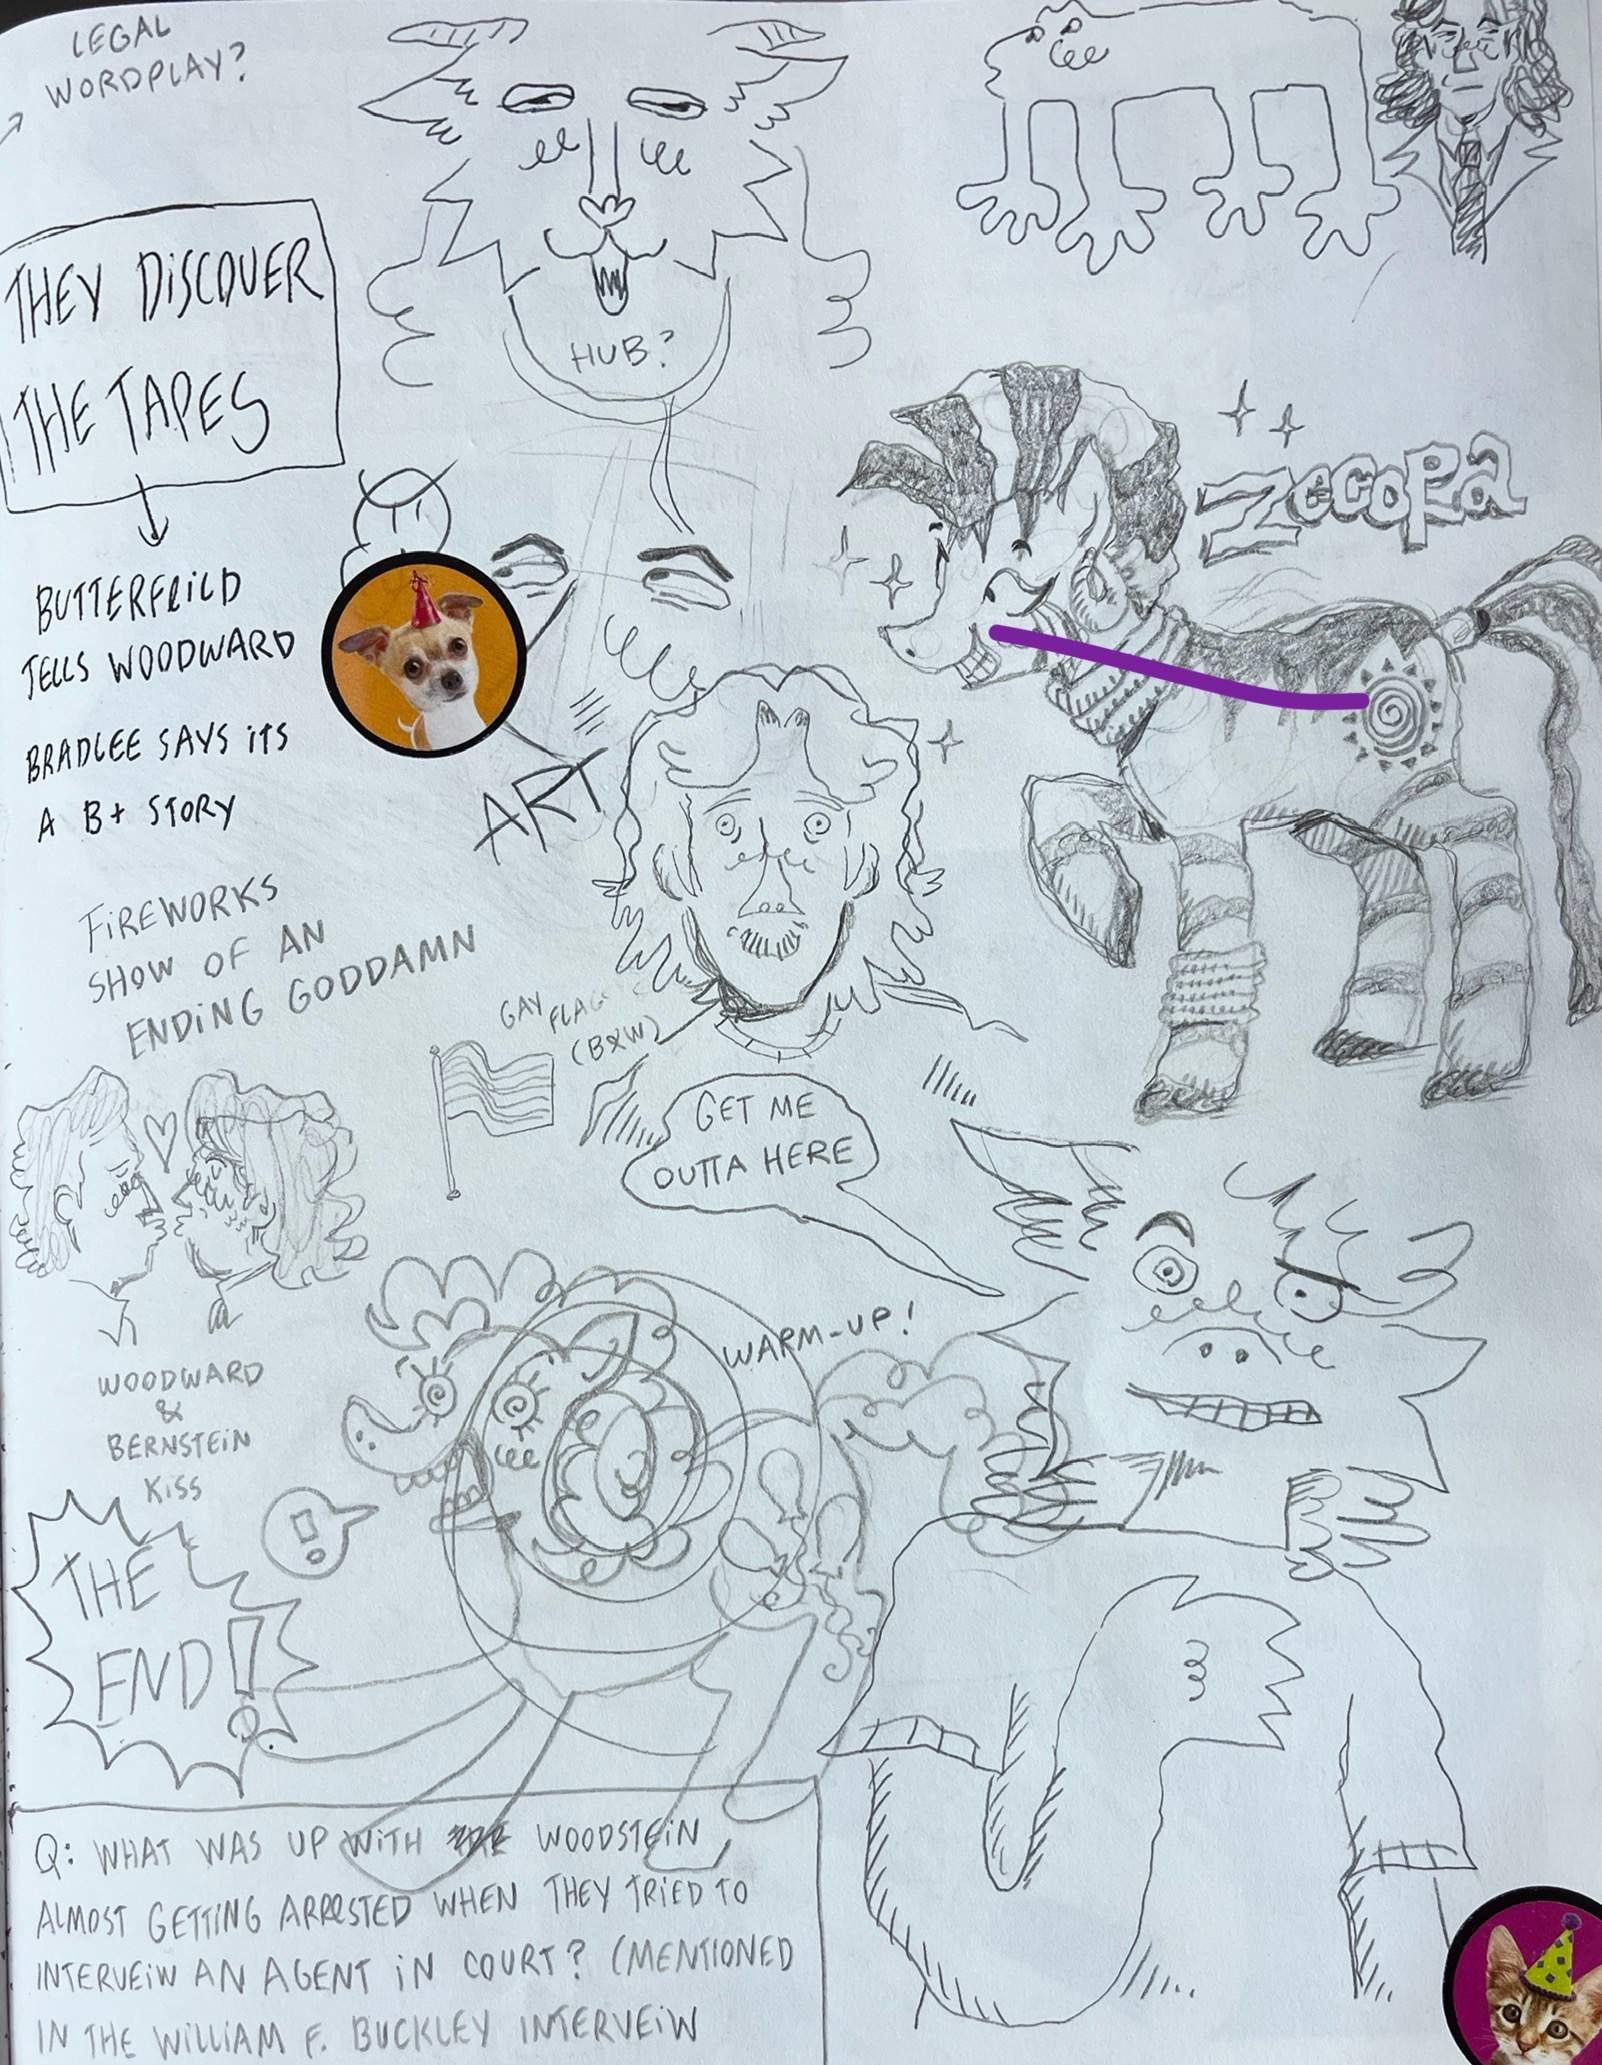 LEGAL
WORDPLAY?
THEY DISCOVER
THE TAPES
HUB?
BUTTERFEILD
TELLS WOODWARD
BRADLEE SAYS ITS
A B+ STORY
ART
ZECORA
FIREWORKS
SHOW OF AN
ENDING GODDAMN
GAY
FLAG
(B&W)
GET ME
OUTTA HERE
WARM-UP!
WOODWARD
&
BERNSTEIN
KISS
THE
END!
Q: WHAT WAS UP WITH WOODSTEIN
ALMOST GETTING ARRESTED WHEN THEY TRIED TO
INTERVEIW AN AGENT IN COURT? (MENTIONED
IN THE WILLIAM F. BUCKLEY INTERVEIW